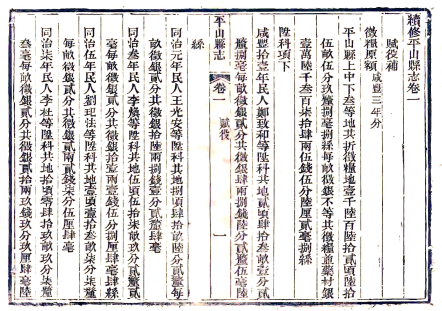 續修平山縣志卷一
賦役補
徵糧原額咸豐三年分
平山縣上中下叁等地共折徵糧地壹千陸百陸拾貳頃陸拾
伍畝伍分玖釐捌毫捌絲每畝徵銀不等共徵糧並藥材銀
壹萬陸千叁百柒拾肆兩伍錢伍分陸厘貳毫捌絲
陞科項下
咸豐拾壹年民人鄭致和等陞科共地貳頃肆拾叁畝壹分貳
釐捌毫每畝徵銀貳分共徵銀肆兩捌錢陸分貳釐伍毫陸
絲
平山縣志
卷一
賦役
一
同治元年民人王光安等陞科共地捌頃肆拾貳畝陸分貳釐每
畝徵銀貳分共徵銀拾陸兩捌錢伍分貳釐肆毫
同治叁年民人李 等陞科共地伍頃伍拾柒畝貳分貳釐貳
毫每畝徵銀貳分共徵銀拾壹兩壹錢肆分肆厘肆毫肆絲
同治伍年民人劉理法等陞科共地壹頃壹拾叁畝柒分柒釐
每畝徵銀貳分共徵銀貳兩貳錢柒分伍厘肆毫
同治柒年民人李杜等陞科共地拾頃零肆拾玖畝玖分柒釐
叁毫每畝徵銀貳分共徵銀貳拾兩玖錢玖分玖厘肆毫陸